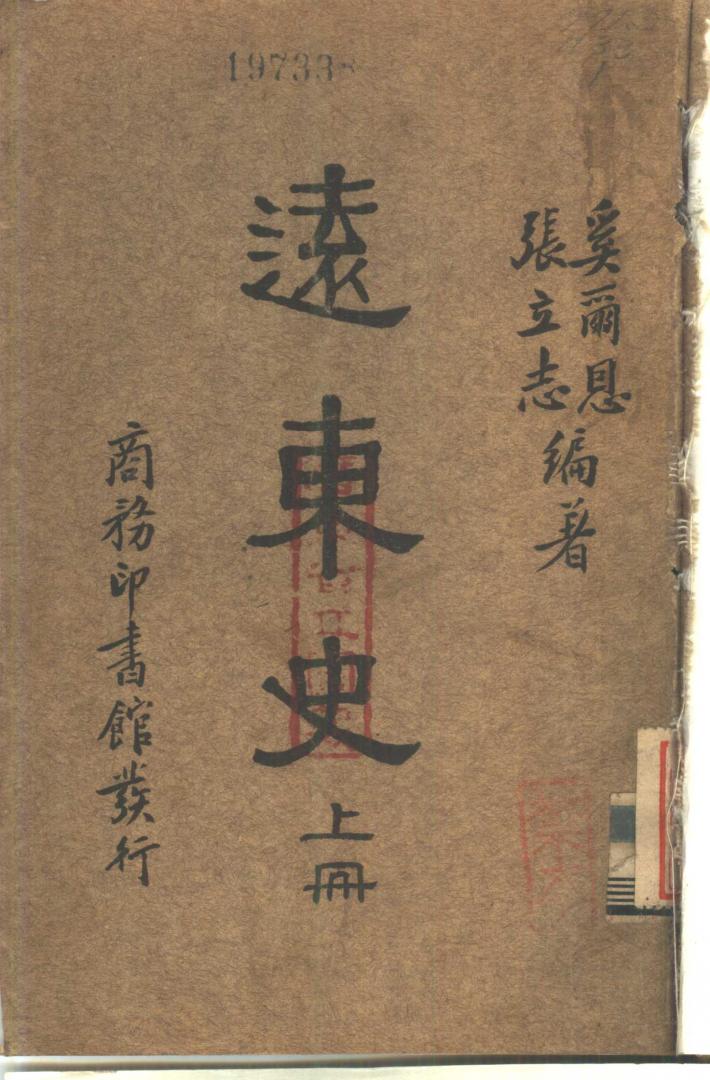 19733
奚爾恩
張立志
編著
遠東史
上冊
商務印書館發行